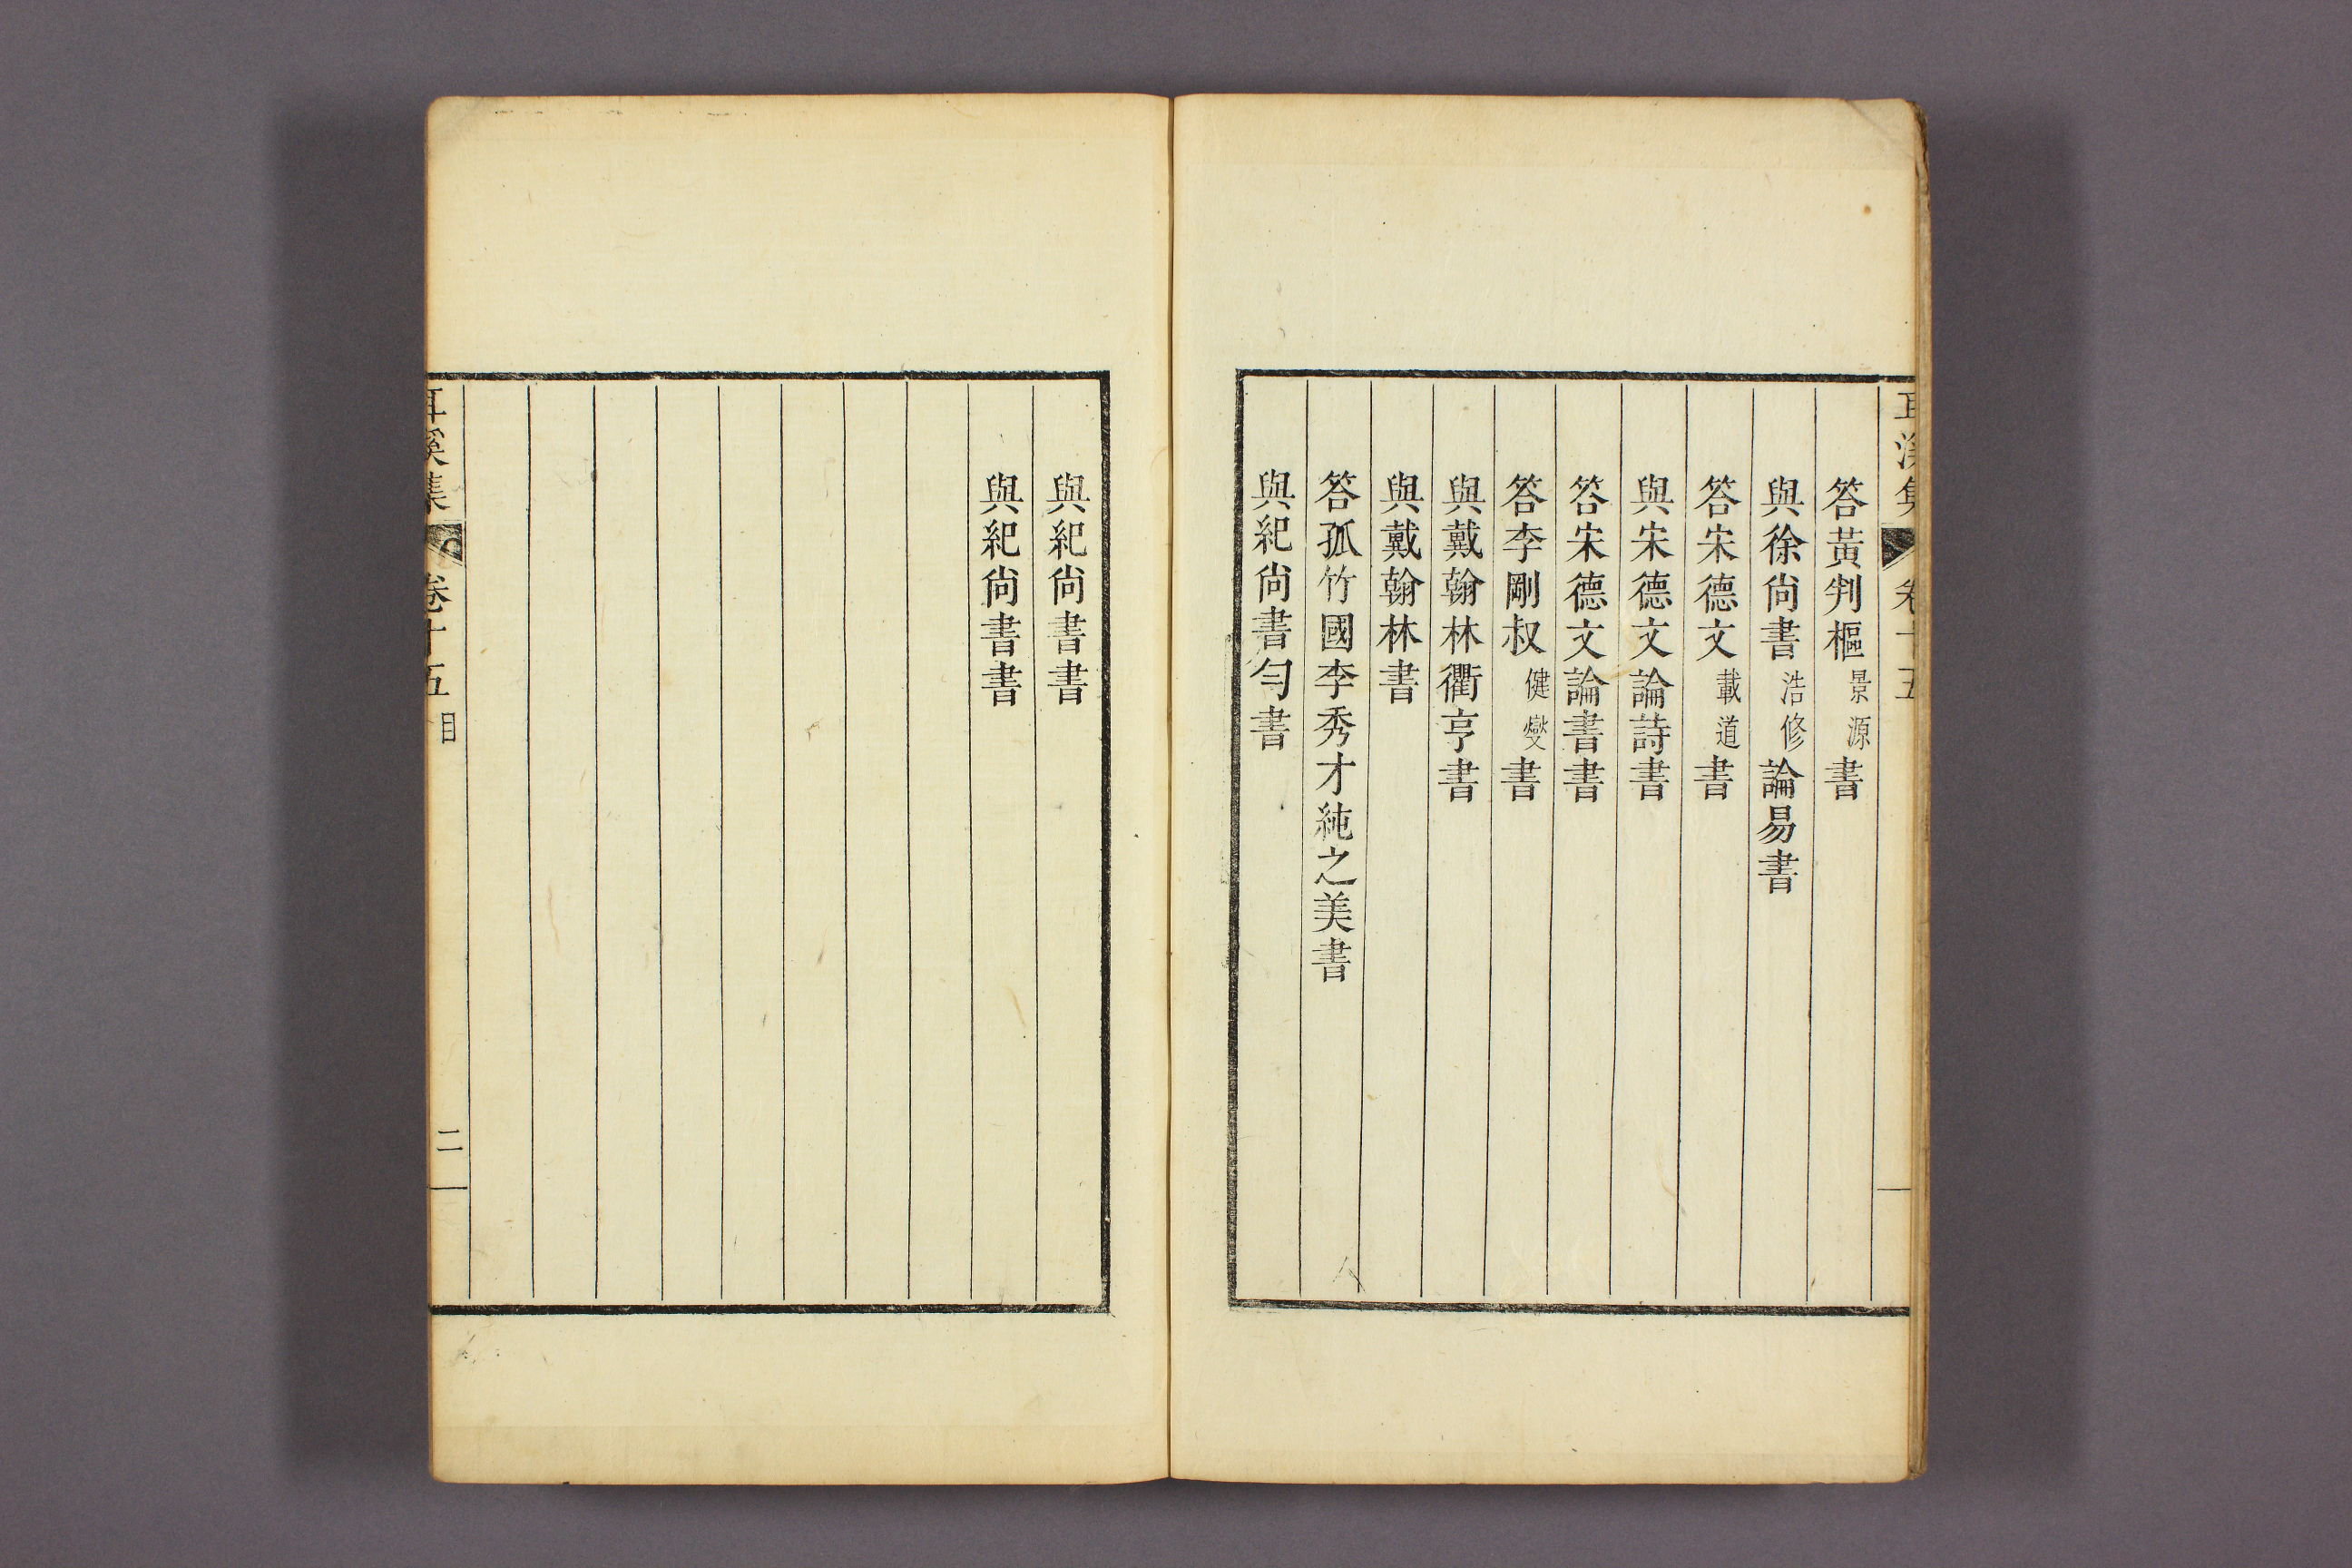 耳溪集
卷十五
答黃判樞景源書
與徐尙書浩修論易書
答宋德文載道書
與宋德文論詩書
答宋德文論書書
答李剛叔健燮書
與戴翰林衢亨書
與戴翰林書
答孤竹國李秀才純之美書
與紀尙書勻書
與紀尙書書
與紀尙書書
耳溪集
卷十五
目
二